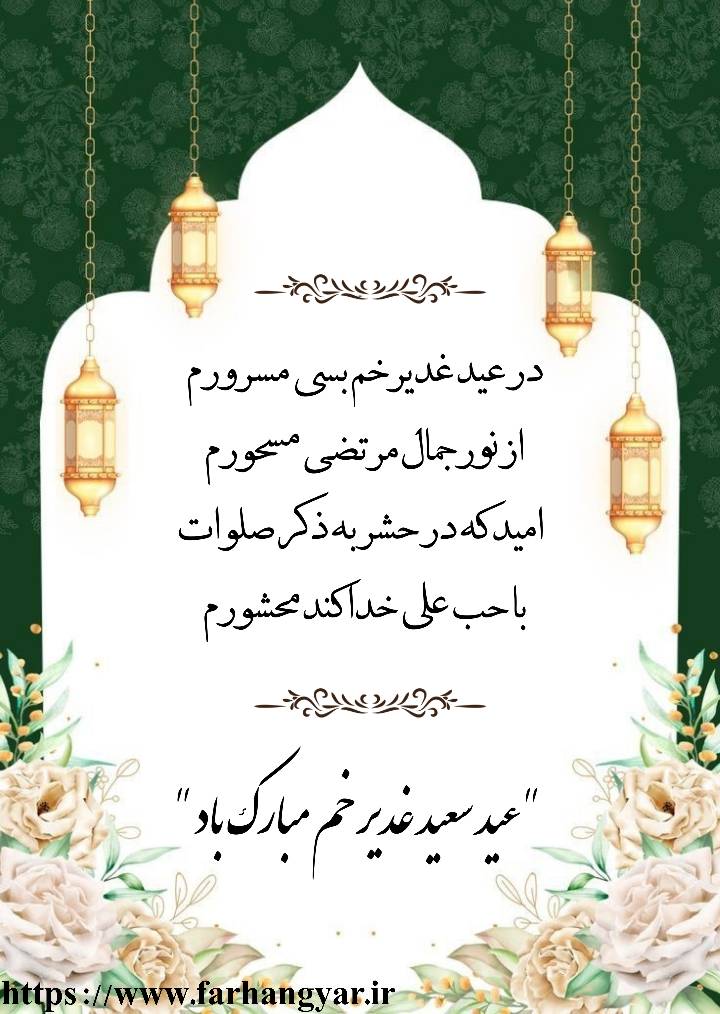 در عید غدیر خم بسی مسرورم
از نور جمال مرتضی مسحورم
امید که در حشر به ذکر صلوات
با حب علی خدا کند محشورم
"عید سعید غدیر خم مبارک باد"
https://www.farhangyar.ir